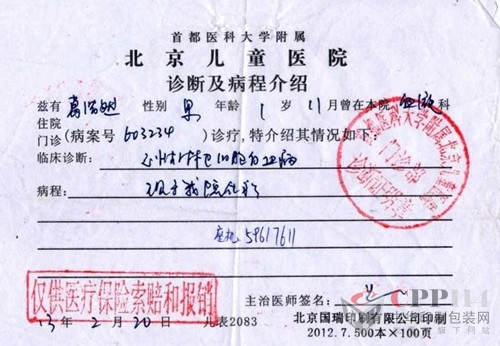 首都医科大学附属
北京儿童医院
诊断及病程介绍
兹有 性别 男 年龄 1 岁 11 月曾在本院 血液 科
住院
门诊 (病案号 603234 ) 诊疗,特介绍其情况如下:
临床诊断: 细胞 血病
病程: 现于我院化疗
座机 59617611
首都医科大学附属北京儿童医院
门诊部
诊断证明章
仅供医疗保险索赔和报销
主治医师签名:
13 年 2 月 20 日 儿表2083
北京国瑞印刷有限公司印制
2012.7.500本×100页
CPP114